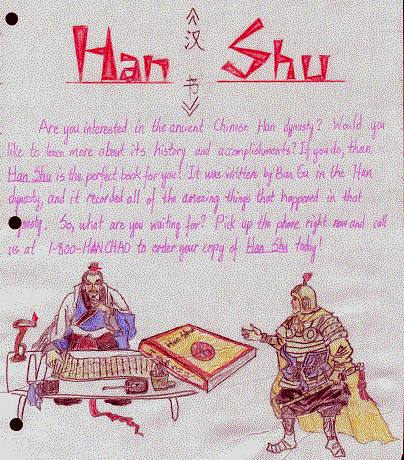 Han Shu
《汉
书》
Are you interested in the ancient Chinese Han dynasty? Would you
like to learn more about its history and accomplishments? If you do, than
Han Shu is the perfect book for you! It was written by Ban Gu in the Han
dynasty, and it recorded all of the amazing things that happened in that
dynasty. So, what are you waiting for? Pick up the phone right now and call
us at 1-800-HANCHAO to order your copy of Han Shu today!
Han Shu